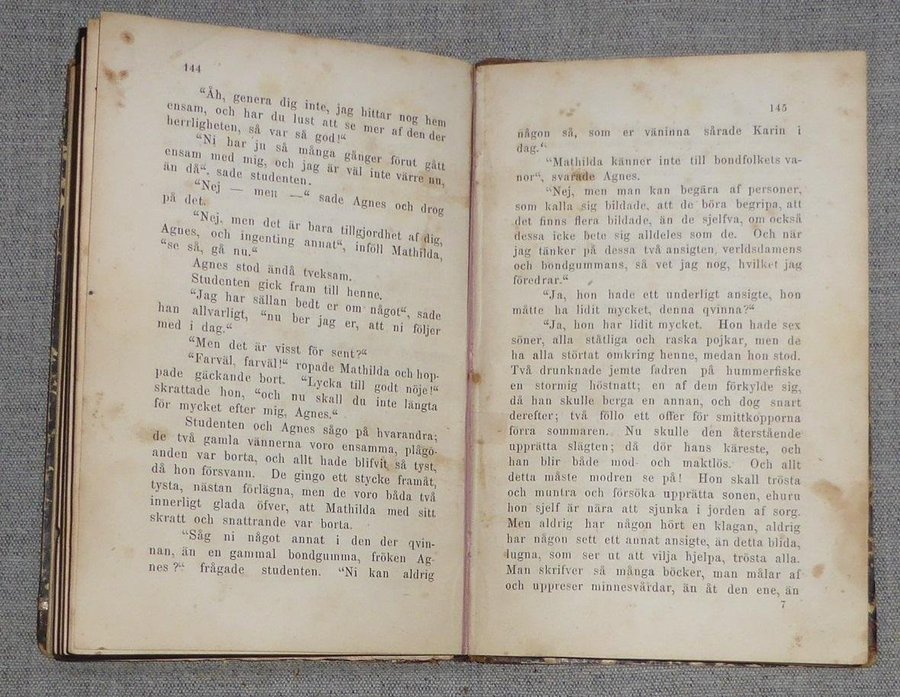 144
“Åh, genera dig inte, jag hittar nog hem
ensam, och har du lust att se mer af den der
herrligheten, så var så god!“
“Ni har ju så många gånger förut gått
ensam med mig, och jag är väl inte värre nu,
än då“, sade studenten.
“Nej — men —“ sade Agnes och drog
på det.
“Nej, men det är bara tillgjordhet af dig,
Agnes, och ingenting annat“, inföll Mathilda,
“se så, gå nu.“
Agnes stod ändå tveksam.
Studenten gick fram till henne.
“Jag har sällan bedt er om något“, sade
han allvarligt, “nu ber jag er, att ni följer
med i dag.“
“Men det är visst för sent?“
“Farväl, farväl!“ ropade Mathilda och hop-
pade gäckande bort. “Lycka till godt nöje!“
skrattade hon, “och nu skall du inte längta
för mycket efter mig, Agnes.“
Studenten och Agnes sågo på hvarandra;
de två gamla vännerna voro ensamma, plågo-
anden var borta, och allt hade blifvit så tyst,
då hon försvann. De gingo ett stycke framåt,
tysta, nästan förlägna, men de voro båda två
innerligt glada öfver, att Mathilda med sitt
skratt och snattrande var borta.
“Såg ni något annat i den der qvin-
nan, än en gammal bondgumma, fröken Ag-
nes?“ frågade studenten. “Ni kan aldrig
145
någon så, som er väninna sårade Karin i
dag.“
“Mathilda känner inte till bondfolkets va-
nor“, svarade Agnes.
“Nej, men man kan begära af personer,
som kalla sig bildade, att de böra begripa, att
det finns flera bildade, än de sjelfva, om också
dessa icke bete sig alldeles som de. Och när
jag tänker på dessa två ansigten, verldsdamens
och bondgummans, så vet jag nog, hvilket jag
föredrar.“
“Ja, hon hade ett underligt ansigte, hon
måtte ha lidit mycket, denna qvinna?“
“Ja, hon har lidit mycket. Hon hade sex
söner, alla ståtliga och raska pojkar, men de
ha alla störtat omkring henne, medan hon stod.
Två drunknade jemte fadren på hummerfiske
en stormig höstnatt; en af dem förkylde sig,
då han skulle berga en annan, och dog snart
derefter; två föllo ett offer för smittkopporna
förra sommaren. Nu skulle den återstående
upprätta slägten; då dör hans käreste, och
han blir både mod- och maktlös. Och allt
detta måste modren se på! Hon skall trösta
och muntra och försöka upprätta sonen, ehuru
hon sjelf är nära att sjunka i jorden af sorg.
Men aldrig har någon hört en klagan, aldrig
har någon sett ett annat ansigte, än detta blida,
lugna, som ser ut att vilja hjelpa, trösta alla.
Man skrifver så många böcker, man målar af
och uppreser minnesvårdar, än åt den ene, än
7